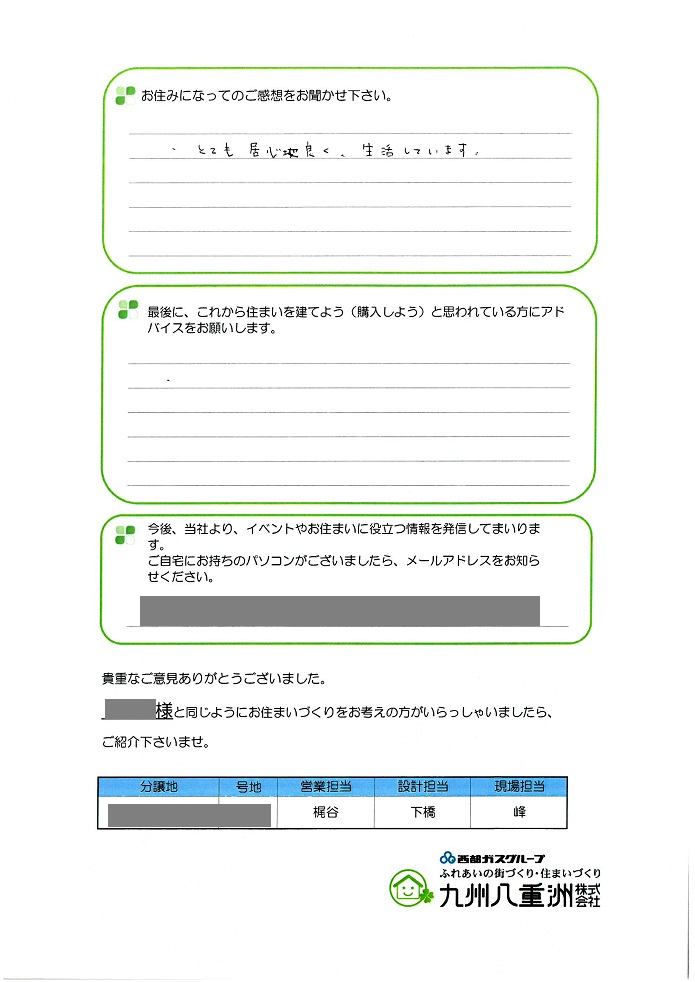 お住みになってのご感想をお聞かせ下さい。
・とても居心地良く、生活しています。
最後に、これから住まいを建てよう（購入しよう）と思われている方にアド
バイスをお願いします。
今後、当社より、イベントやお住まいに役立つ情報を発信してまいりま
す。
ご自宅にお持ちのパソコンがございましたら、メールアドレスをお知ら
せください。
貴重なご意見ありがとうございました。
様と同じようにお住まいづくりをお考えの方がいらっしゃいましたら、
ご紹介下さいませ。
分譲地 号地 営業担当 設計担当 現場担当
梶谷 下橋 峰
西部ガスグループ
ふれあいの街づくり・住まいづくり
九州八重洲株式会社